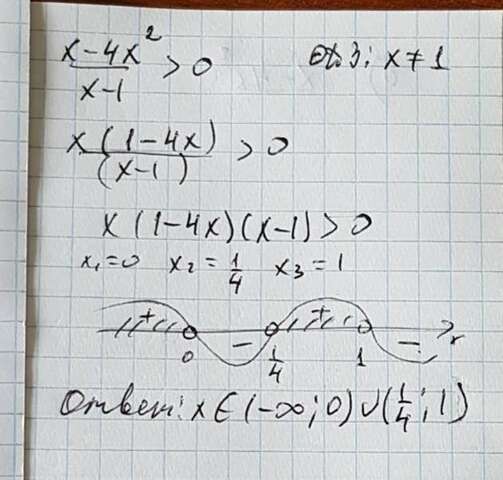 x-4x²/x-1 > 0 ОДЗ: x ≠ 1
x(1-4x)/(x-1) > 0
x(1-4x)(x-1) > 0
x₁=0 x₂=1/4 x₃=1
+ - + -
0 1/4 1 x
Ответ: x∈(-∞;0)∪(1/4;1)